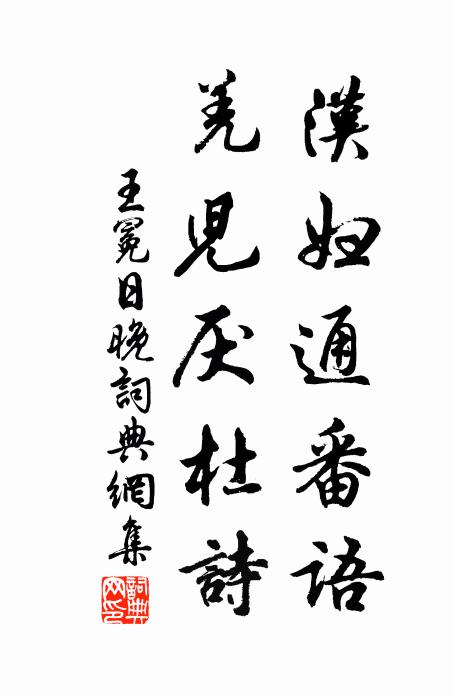 漢婦通番語
羌児厌杜詩
王冕日晚詞典網集
詞典网印